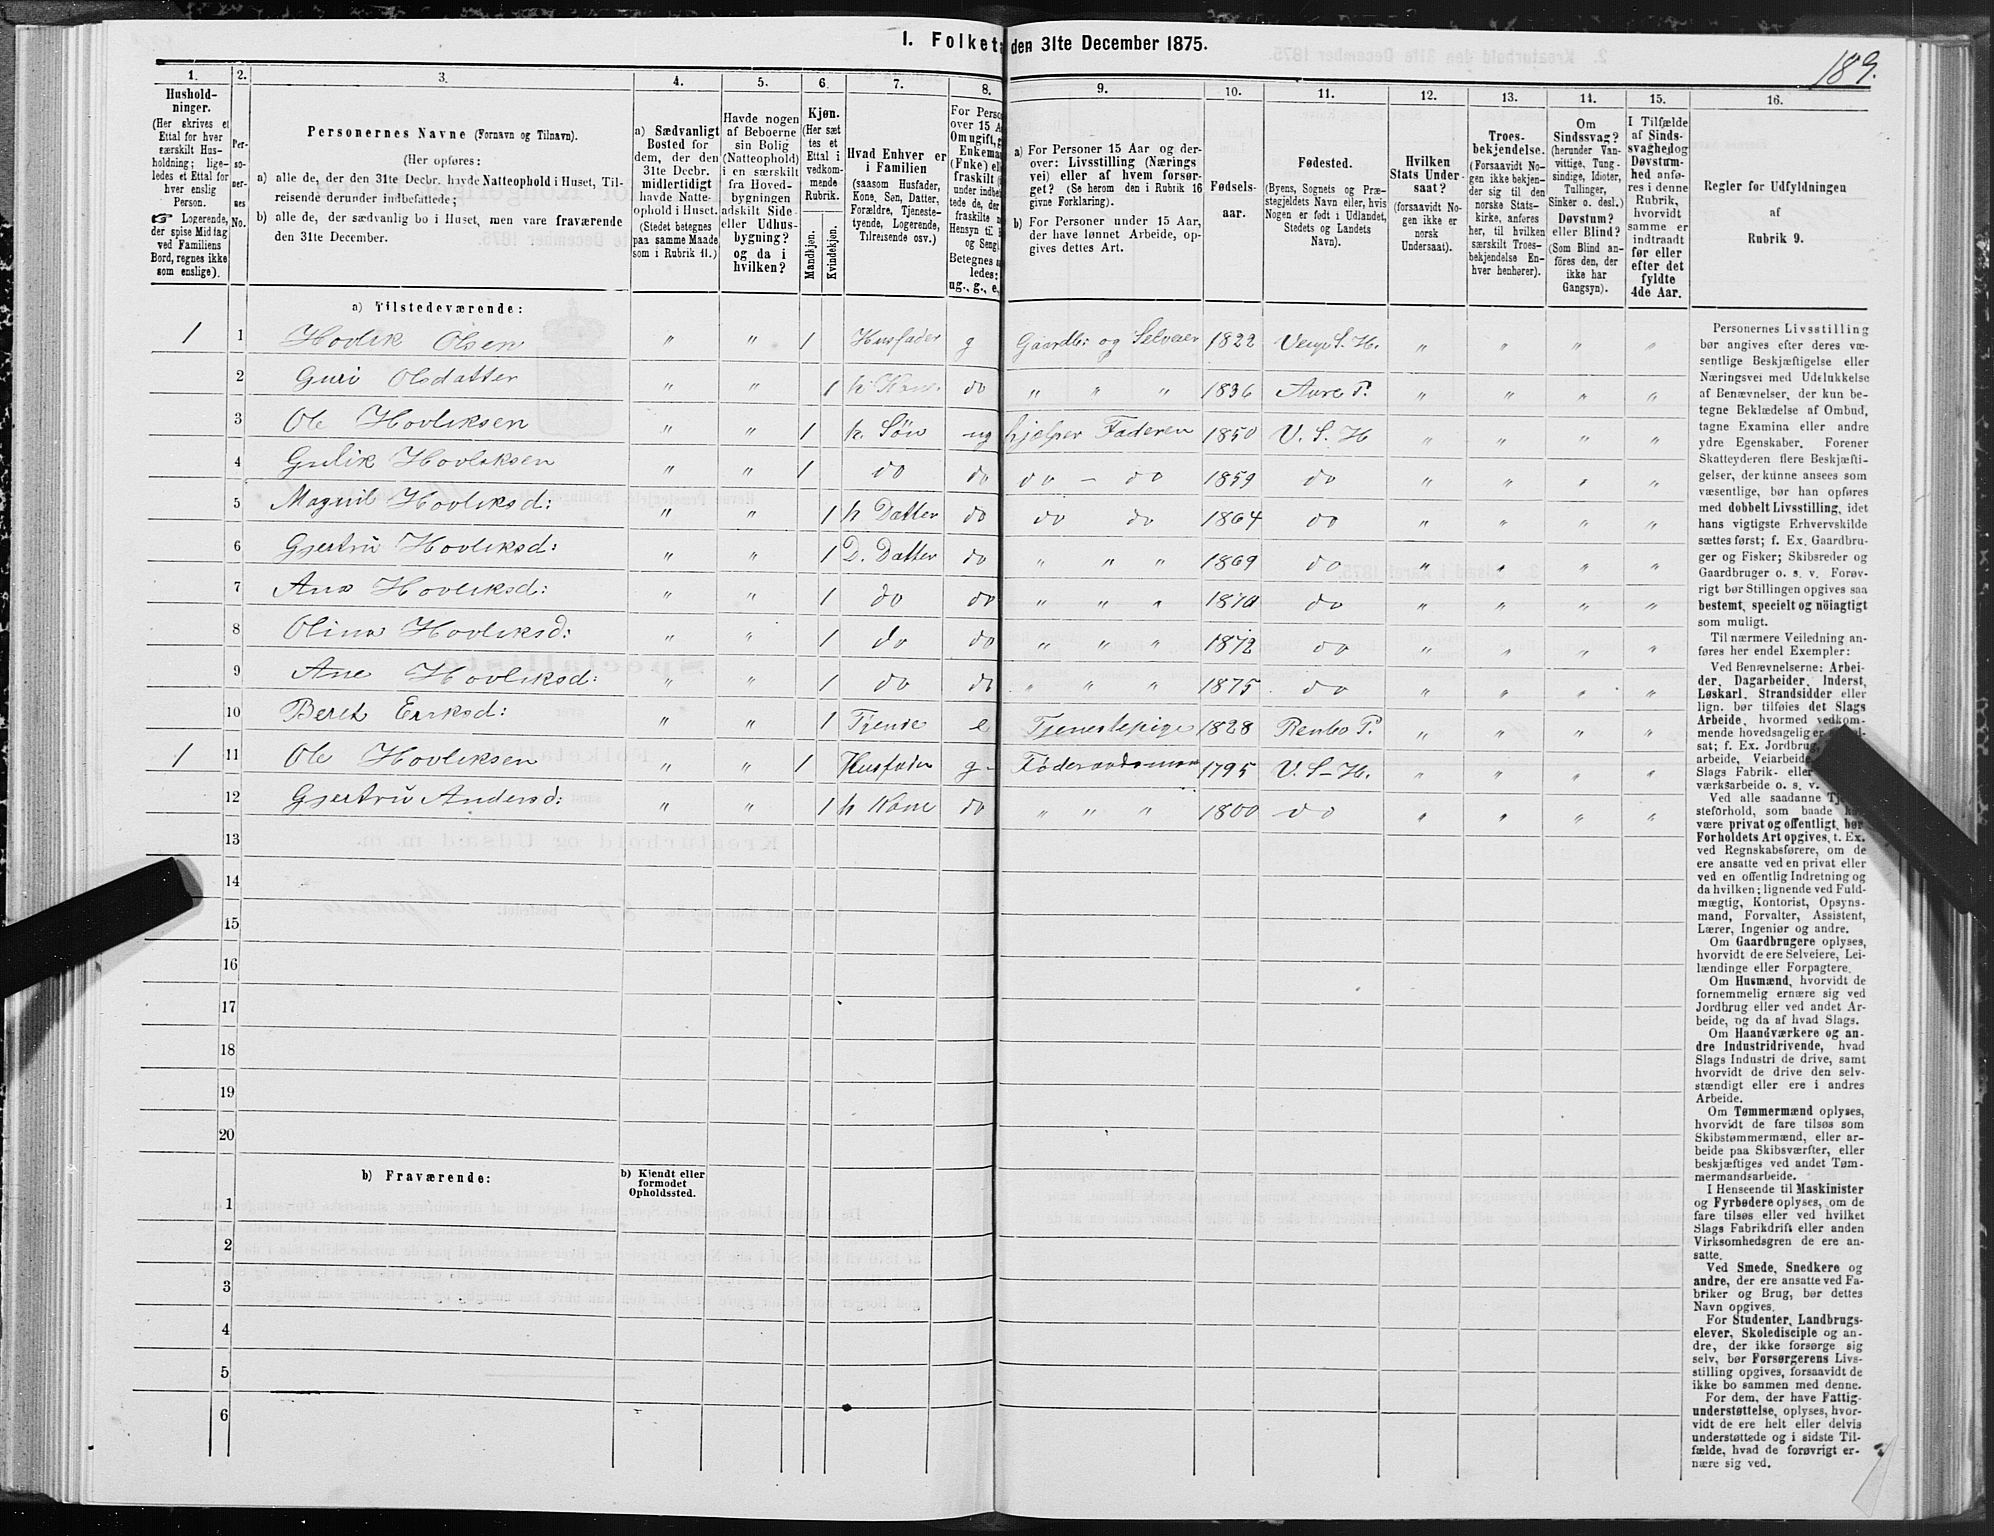 I. Folketa den 31te December 1875.
189.
1. 2. 3. 4. 5. 6. 7. 8. 9. 10. 11. 12. 13. 14. 15. 16.
Hushold-
ninger.
(Her skrives et
Ettal for hver
særskilt Hus-
holdning; lige-
ledes et Ettal for
hver enslig
Person.
☞ Logerende,
der spise Middag
ved Familiens
Bord, regnes ikke
som enslige).
Per-
so-
ner-
nes
No.
Personernes Navne (Fornavn og Tilnavn).
(Her opføres:
a) alle de, der den 31te Decbr. havde Natteophold i Huset, Til-
reisende derunder indbefattede;
b) alle de, der sædvanlig bo i Huset, men vare fraværende
den 31te December.
a) Sædvanligt
Bosted for
dem, der den
31te Decbr.
midlertidigt
havde Natte-
ophold i Huset.
(Stedet betegnes
paa samme Maade
som i Rubrik 11.)
Havde nogen
af Beboerne
sin Bolig
(Natteophold)
i en særskilt
fra Hoved-
bygningen
adskilt Side-
eller Udhus-
bygning?
og da i
hvilken?
Kjøn.
(Her sæt
tes et
Ettal i
vedkom-
mende
Rubrik.
Mandkjøn.
Kvindekjøn.
Hvad Enhver er
i Familien
(saasom Husfader,
Kone, Søn, Datter,
Forældre, Tjeneste-
tyende, Logerende,
Tilreisende osv.)
For Perso
over 15 A
Om ugift, g
Enkeman
(Enke) elle
fraskilt (
under indbe
tede de, der
fraskilte
Hensyn til
og Seng
Betegnes
ledes:
ug., g., e,
a) For Personer 15 Aar og der-
over: Livsstilling (Nærings
vei) eller af hvem forsør-
get? (Se herom den i Rubrik 16
givne Forklaring).
b) For Personer under 15 Aar,
der have lønnet Arbeide, op-
gives dettes Art.
Fødsels-
aar.
Fødested.
(Byens, Sognets og Præ-
stegjeldets Navn eller, hvis
Nogen er født i Udlandet,
Stedets og Landets
Navn).
Hvilken
Stats Under-
saat?
(forsaavidt No-
gen ikke er
norsk
Undersaat).
Troes-
bekjendelse.
(Forsaavidt No-
gen ikke bekjen-
der sig til den
norske Stats-
kirke, anføres
her, til hvilken
særskilt Troes-
bekjendelse En-
hver henhører).
Om
Sindssvag?
(herunder Van-
vittige, Tung-
sindige, Idioter,
Tullinger,
Sinker o. desl.)
Døvstum?
eller Blind?
(Som Blind an-
føres den, der
ikke har
Gangsyn).
I Tilfælde
af Sinds-
svaghed og
Døvstum-
hed anfø-
res i denne
Rubrik,
hvorvidt
samme er
indtraadt
før eller
efter det
fyldte
4de Aar.
Regler for Udfyldningen
af
Rubrik 9.
a) Tilstedeværende:
1 1 Hovlik Olsen " " 1 Husfader g Gaardbr og Selveier 1822 S. H. " " " "
2 Guri Olsdatter " " 1 h Kone do " " " 1836 Aure P. " " " "
3 Ole Hovliksen " " 1 h. Søn ug hjelper Faderen 1850 V. S. H " " " "
4 Gulik Hovliksen " " 1 do do do - do 1859 do " " " "
5 Magnil Hovliksd: " " 1 h Datter do do do 1864 do " " " "
6 Gjertru Hovliksd: " " 1 D. Datter do " " " 1869 do " " " "
7 Ana Hovliksd: " " 1 do do " " " 1870 do " " " "
8 Olina Hovliksd: " " 1 do do " " " 1872 do " " " "
9 Ane Hovliksd: " " 1 do do " " " 1875 do " " " "
10 Beret Eriksd: " " 1 Tjende e Tjenestepige 1828 P. " " " "
1 11 Ole Hovliksen " " 1 Husfader g Føderaadsman 1795 V. S-H. " " " "
12 Gjertru Andersd: " " 1 h Kone do " " " 1800 do " " " "
13
14
15
16
17
18
19
20
b) Fraværende:
b) Kjendt eller
formodet
Opholdssted.
1
2
3
4
5
6
Personernes Livsstilling
bør angives efter deres væ-
sentlige Beskjæftigelse eller
Næringsvei med Udelukkelse
af Benævnelser, der kun be-
tegne Beklædelse af Ombud,
tagne Examina eller andre
ydre Egenskaber. Forener
Skatteyderen flere Beskjæfti-
gelser, der kunne ansees som
væsentlige, bør han opføres
med dobbelt Livsstilling, idet
hans vigtigste Erhvervskilde
sættes først; f. Ex. Gaardbru-
ger og Fisker; Skibsreder og
Gaardbruger o. s. v. Forøv-
rigt bør Stillingen opgives saa
bestemt, specielt og nöiagtigt
som muligt.
Til nærmere Veiledning an-
føres her endel Exempler:
Ved Benævnelserne: Arbei-
der, Dagarbeider, Inderst,
Løskarl, Strandsidder eller
lign. bør tilføies det Slags
Arbeide, hvormed vedkom-
mende hovedsagelig er
sat; f. Ex. Jordbrug,
arbeide, Veiarbeide
Slags Fabrik- eller
værksarbeide o. s. v.
Ved alle saadanne Tje
stéforhold, som baade
være privat og offentligt, bør
Forholdets Art opgives, t. Ex.
ved Regnskabsførere, om de
ere ansatte ved en privat eller
ved en offentlig Indretning og
da hvilken; lignende ved Fuld-
mægtig, Kontorist, Opsyns-
mand, Forvalter, Assistent,
Lærer, Ingeniør og andre.
Om Gaardbrugere oplyses,
hvorvidt de ere Selveiere, Lei-
lændinge eller Forpagtere.
Om Husmænd, hvorvidt de
fornemmelig ernære sig ved
Jordbrug eller ved andet Ar-
beide, og da af hvad Slags.
Om Haandværkere og an-
dre Industridrivende, hvad
Slags Industri de drive, samt
hvorvidt de drive den selv-
stændigt eller ere i andres
Arbeide.
Om Tømmermænd oplyses,
hvorvidt de fare tilsøs som
Skibstømmermænd, eller ar-
beide paa Skibsværfter, eller
beskjæftiges ved andet Tøm-
mermandsarbeide.
I Henseende til Maskinister
og Fyrbødere oplyses, om de
fare tilsøs eller ved hvilket
Slags Fabrikdrift eller anden
Virksomhedsgren de ere an-
satte.
Ved Smede, Snedkere og
andre, der ere ansatte ved Fa-
briker og Brug, bør dettes
Navn opgives.
For Studenter, Landbrugs-
elever, Skoledisciple og an-
dre, der ikke forsørge sig
selv, bør Forsørgerens Livs-
stilling opgives, forsaavidt de
ikke bo sammen med denne.
For dem, der have Fattig-
understøttelse, oplyses, hvor-
vidt de ere helt eller delvis
understøttede og i sidste Til-
fælde, hvad de forøvrigt er-
nære sig ved.